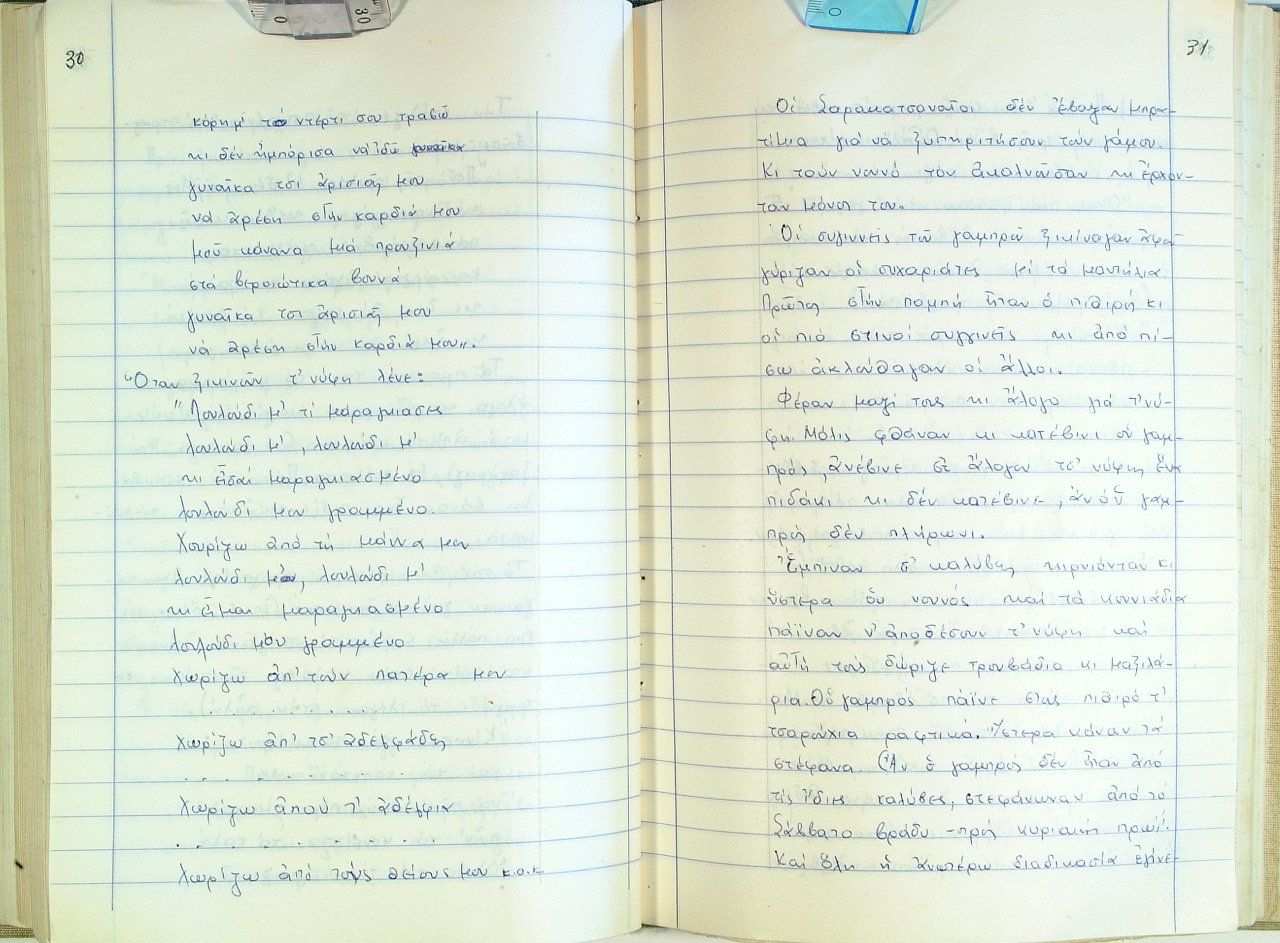 30
κόρη μ' τὸ ντέρτι σου τραβῶ
κι δέν ἠμπόρισα νὰ ἰδῶ
γυναῖκα τσι ἀρισιᾶς μου
νά ἀρέση στὴν καρδιά μου
μοῦ κάνανα μιά προυξινιά
στά βεροιώτικα βουνά
γυναῖκα τσι ἀρισιᾶς μου
νά ἀρέση στὴν καρδιά μου".
Ὅταν ξικινοῦν τ' νύφη λένε:
"Λουλούδι μ' τί μαραγκιασες
λουλούδι μ', λουλούδι μ'
κι εἶσαι μαραγκιασμένο
λουλούδι μου γραμμένο.
Χουρίζω ἀπό τή μάννα μου
λουλούδι μου, λουλούδι μ'
κι εἶμαι μαραγκιασμένο
λουλούδι μου γραμμένο
Χωρίζω ἀπ' τούν πατέρα μου
. . . . . . . . . . . .
Χωρίζω ἀπ' τσ' ἀδελφάδες
. . . . . . . . . . . .
Χωρίζω ἀπού τ' ἀδέλφια
. . . . . . . . . . . .
Χωρίζω ἀπό τούς θείους μου κ.ο.κ.
31
Οἱ Σαρακατσαναῖοι δέν ἔβαγαν μπρα-
τίμια γιά νά ξυπηριτήσουν τούν γάμου.
Κι τούν νουνό τόν ἀκαλνοῦσαν κι ἔρχον-
ταν μόνοι του.
Οἱ συγιννεῖς τοῦ γαμπροῦ ξικίναγαν ἀφοῦ
γύριζαν οἱ συχαριάτες μί τά μαντήλια
Πρῶτος στὴν πομπή ἦταν ὁ πιθιρός κι
οἱ πιό στινοί συγγινεῖς κι ἀπό πί-
σω ἀκλούθαγαν οἱ ἄλλοι.
Φέραν μαζί τους κι ἄλογο γιά τ' νύ-
φη. Μόλις φθάναν κι κατέβινι οὑ γαμ-
πρός, ἀνέβινε στ' ἄλογου τσ' νύφης ἕνα
πιδάκι κι δέν κατέβινε, ἄν οὑ γαμ-
πρός δέν πλήρωνι.
Ἔμπιναν σ' καλύβες κιρνιόνταν κι
ὕστερα οὑ νουνός καί τά κουνιάδια
πάϊναν ν' ἀποδέσουν τ' νύφη καί
αὐτή τούς δώριζε τρουβάδια κι μαξιλά-
ρια. Οὑ γαμπρός πάϊνε στους πιθιρό τ'
τσαρούχια ραφτικά. Ὕστερα κάναν τά
στέφανα. (Ἄν ὁ γαμπρός δέν ἦταν ἀπό
τίς ἴδιες καλύβες, στεφάνωναν ἀπό τό
Σάββατο βράδυ -πρός κυριακή πρωΐ.
Καί ὅλη ἡ ἀνωτέρω διαδικασία ἐγίνε-